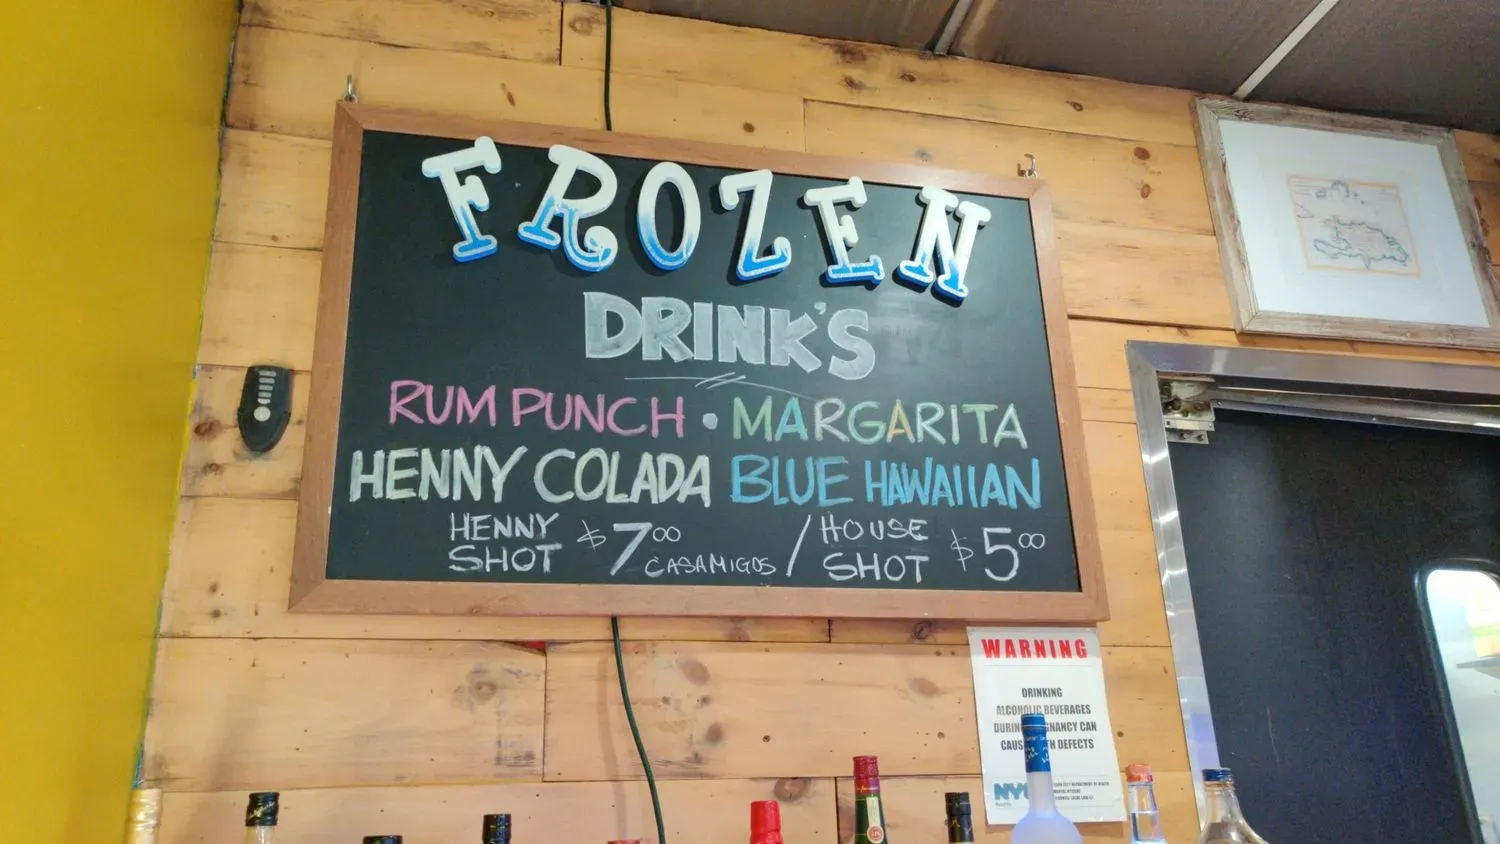 FROZEN
DRINK'S
RUM PUNCH • MARGARITA
HENNY COLADA BLUE HAWAIIAN
HENNY SHOT $7.00 CASAMIGOS / HOUSE SHOT $5.00
WARNING
DRINKING
ALCOHOLIC BEVERAGES
CAN
DEFECTS
NYC